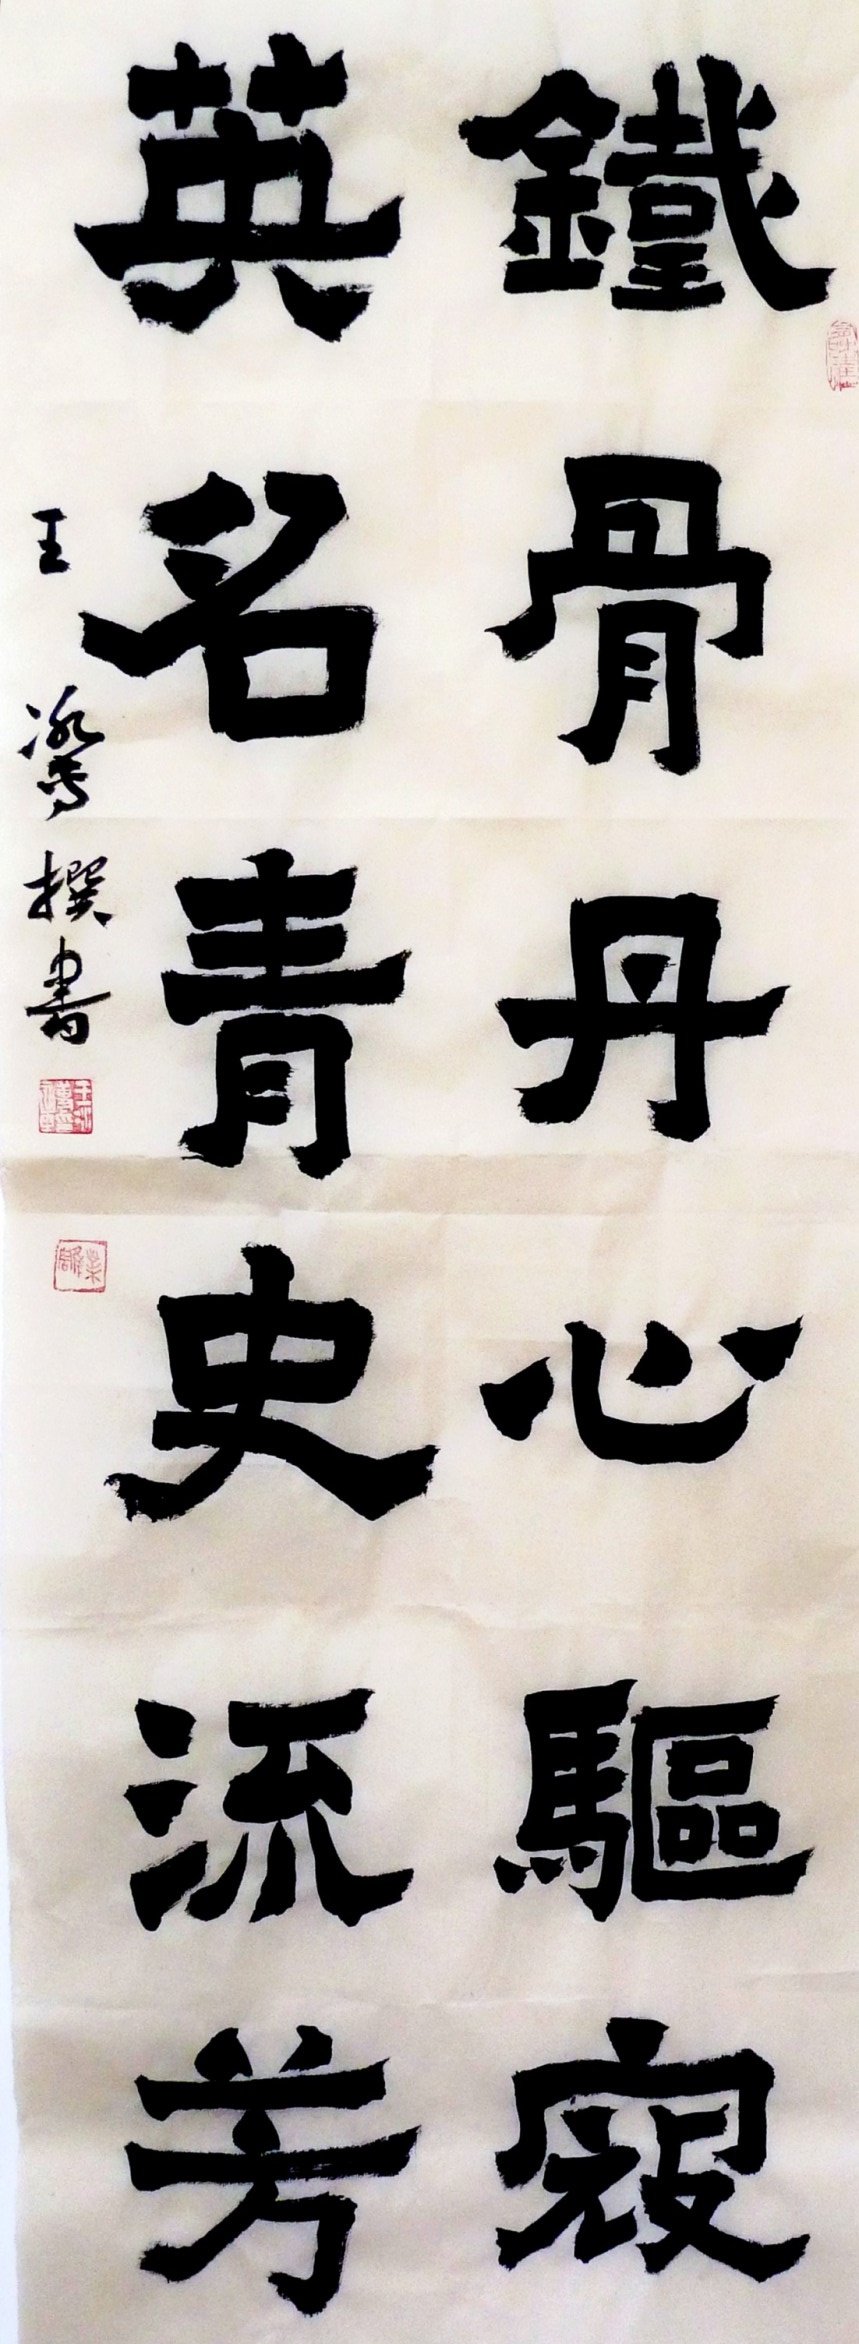 鐵骨丹心驅寇
英名青史流芳
王 撰書